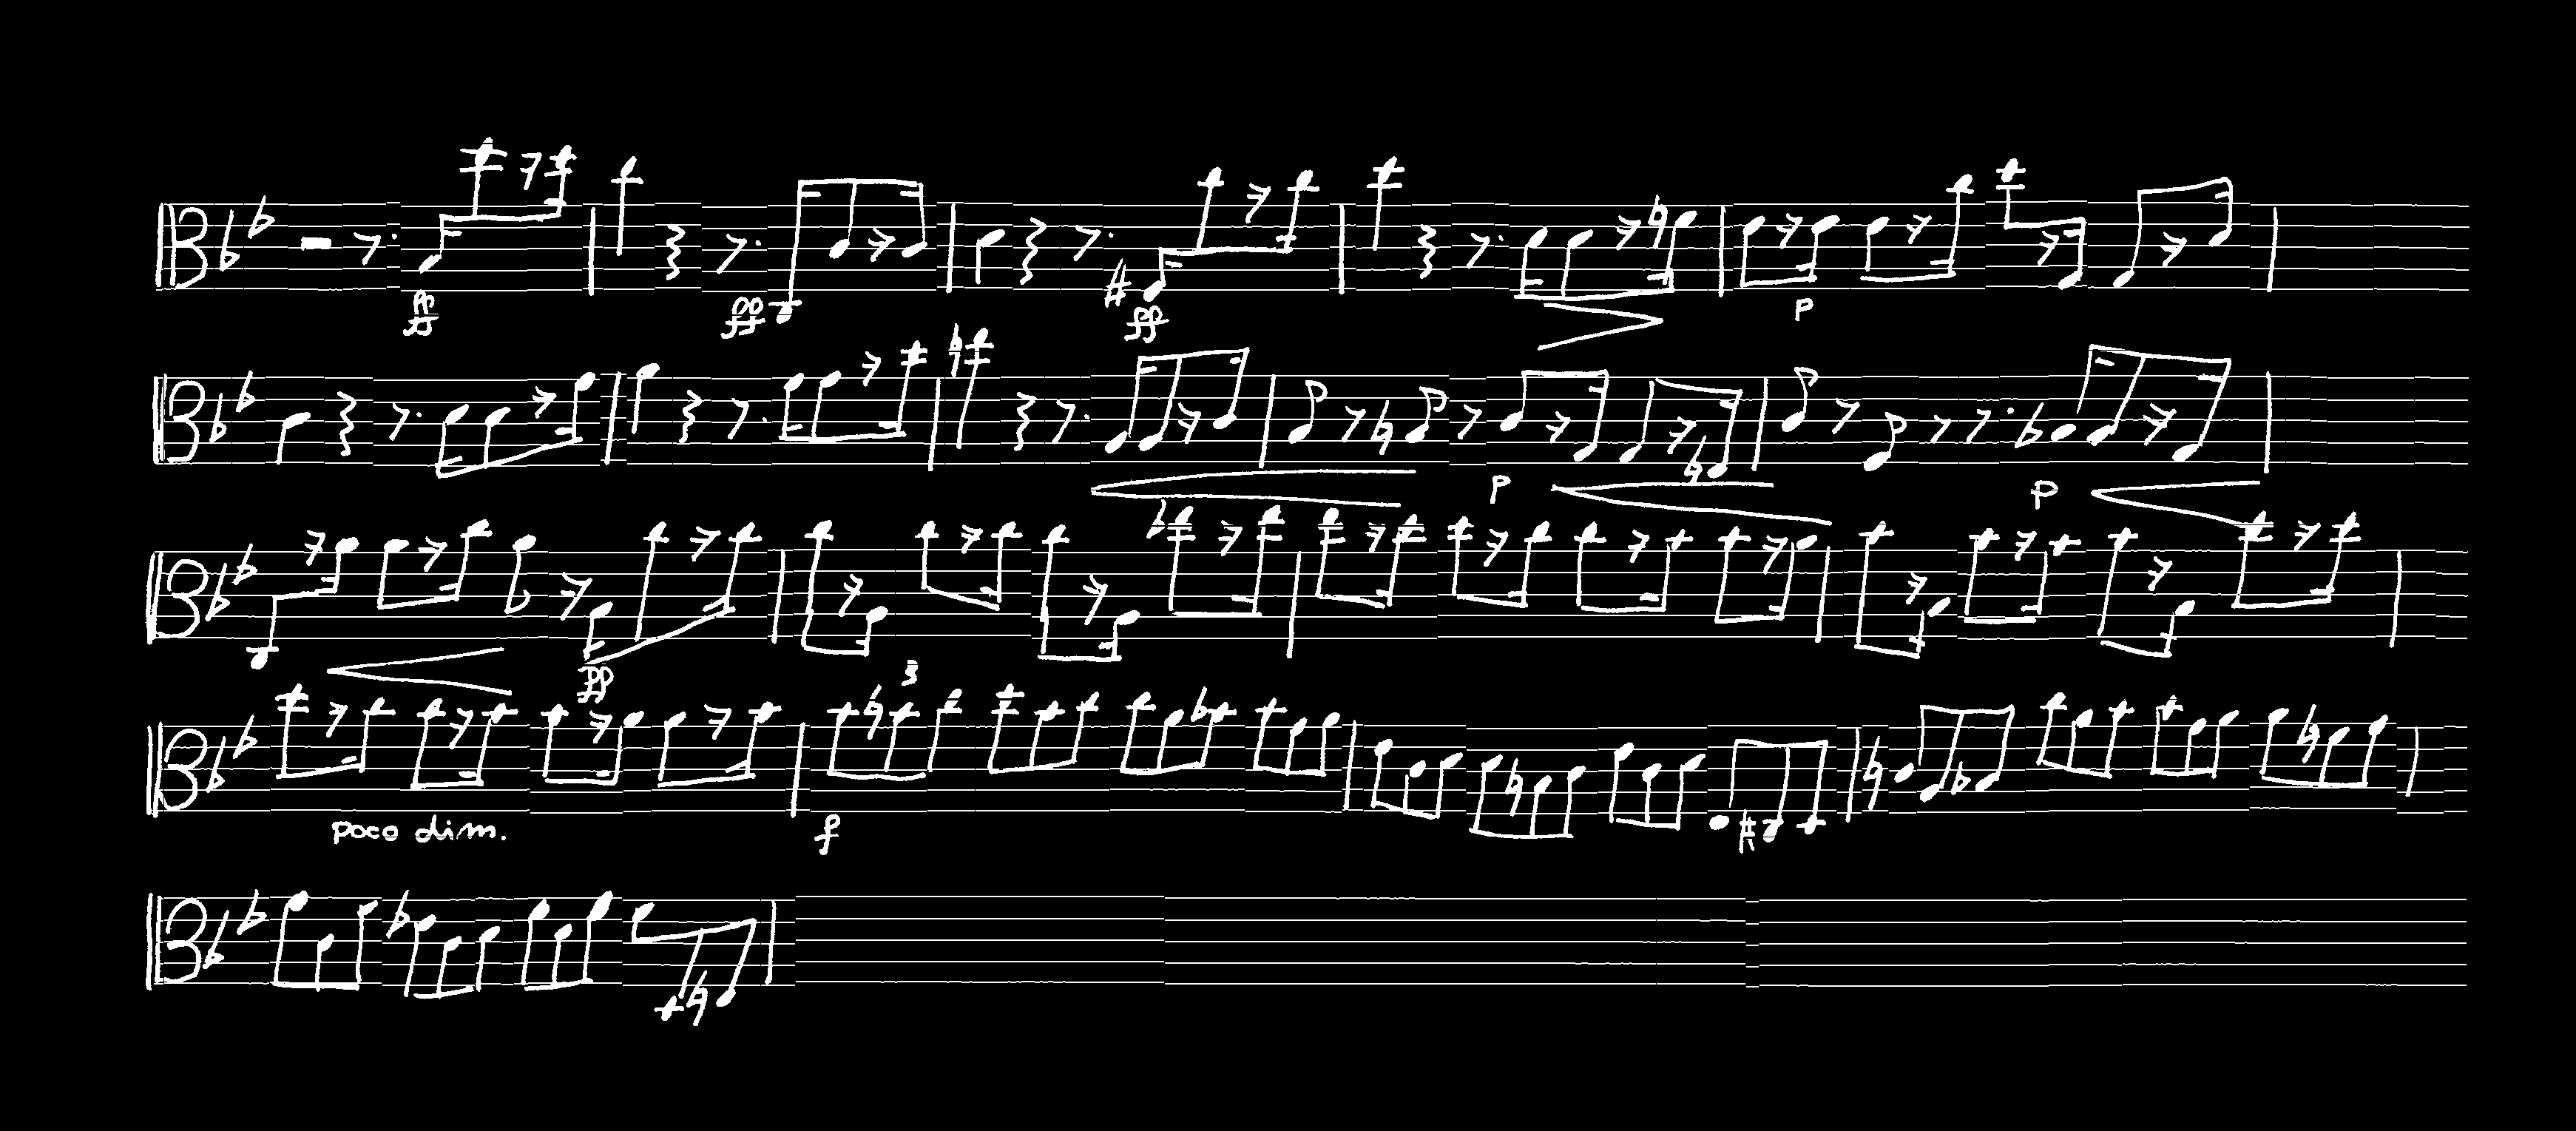 ff ff ff p
p p
pp 3
poco dim. f